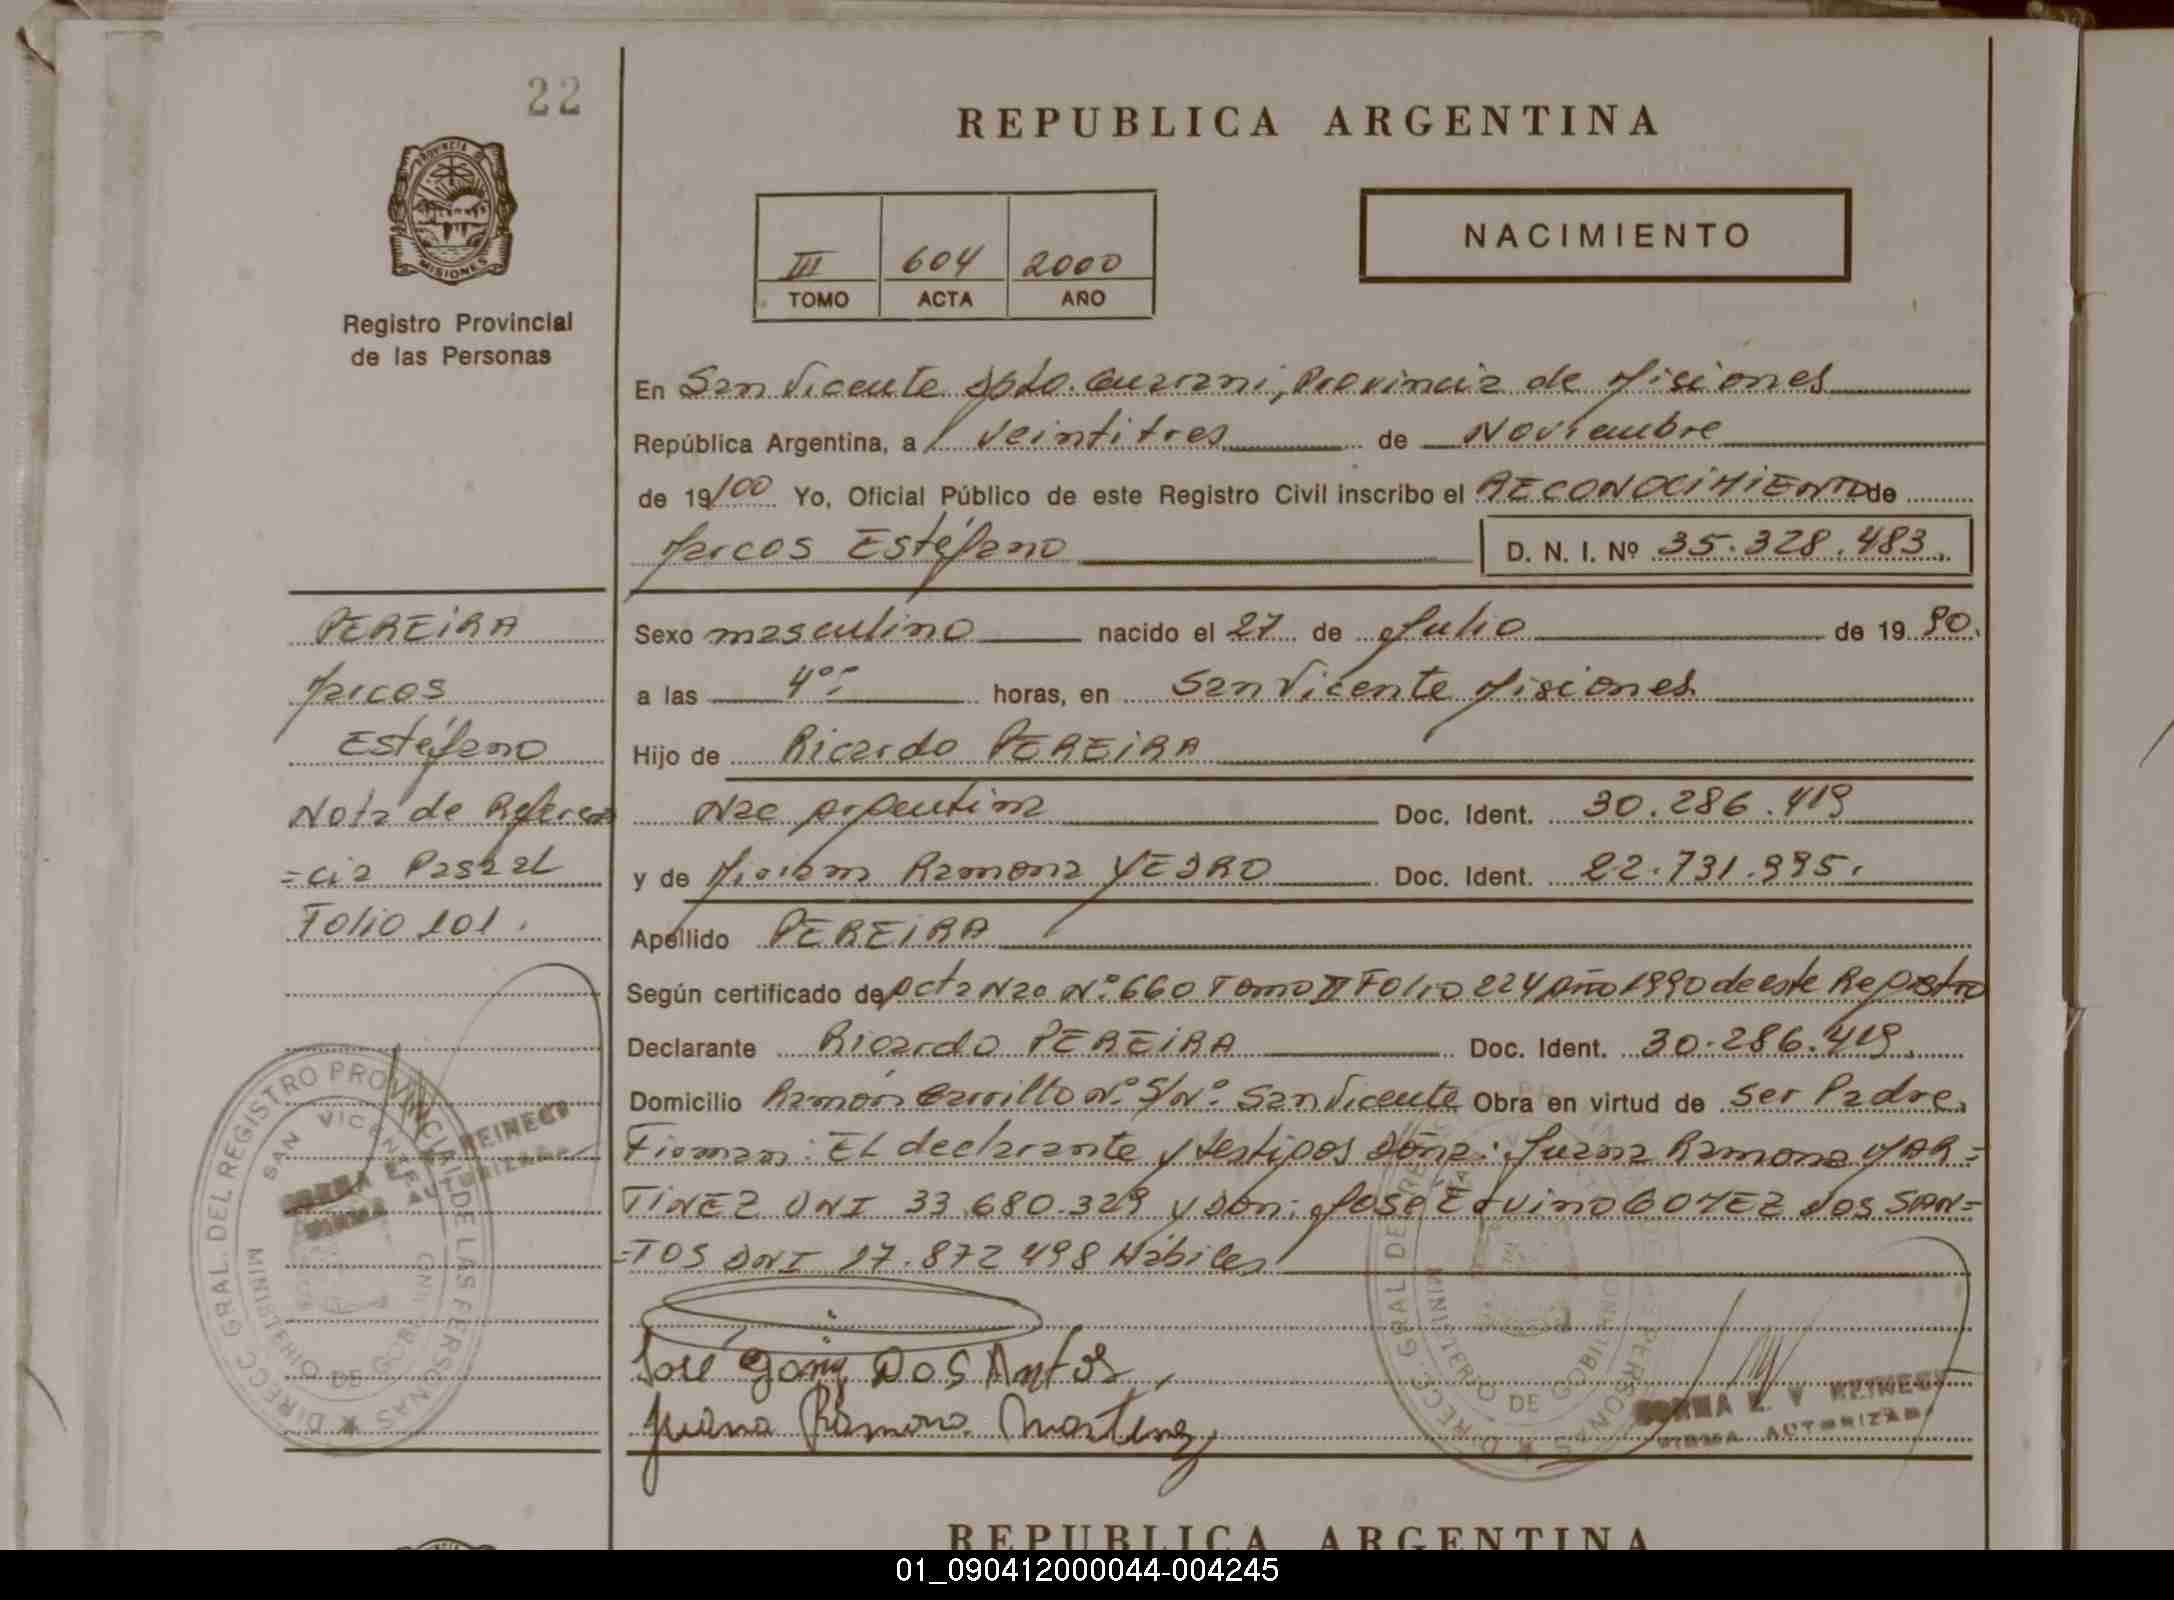 22
REPUBLICA ARGENTINA
PROVINCIA DE
MISIONES
Registro Provincial
de las Personas
III 604 2000
TOMO ACTA AÑO
NACIMIENTO
En San Vicente Dpto. Guarani, Provincia de Misiones
República Argentina, a veintitres de Noviembre
de 19/00 Yo, Oficial Público de este Registro Civil inscribo el RECONOCIMIENTO de
Marcos Estéfano D. N. I. Nº 35.328.483.
Sexo masculino nacido el 27 de Julio de 19 90.
a las 4°° horas, en San Vicente Misiones
Hijo de Ricardo PEREiRA
Nac Argentina Doc. Ident. 30.286.419
y de Miriam Ramona YEDRO Doc. Ident. 22.731.995.
Apellido PEREiRA
Según certificado de Acta Nac N° 660 Tomo II Folio 224 Año 1990 de este Registro
Declarante Ricardo PEREiRA Doc. Ident. 30.286.419.
Domicilio Ramón Carrillo N° S/N° San Vicente Obra en virtud de Ser Padre.
Firman: El declarante y testigos Doña: Juana Ramona MAR=
TiNEZ DNI 33.680.329 y Don: José Eduino GOMEZ DOS SAN=
=TOS DNI 17.872 498 Hábiles
José Gomez Dos Antos
Juana Ramona Martinez
PEREiRA
Marcos
Estéfano
Nota de Referen
=cia Pasa al
Folio 101.
DIRECC. GRAL. DEL REGISTRO PROVINCIAL DE LAS PERSONAS
SAN VICENTE
MINISTERIO DE GOBIERNO
NORMA E. V. REINECK
FIRMA AUTORIZADA
MINISTERIO DE GOBIERNO
NORMA E. V. REINECK
FIRMA AUTORIZADA
REPUBLICA ARGENTINA
01_090412000044-004245